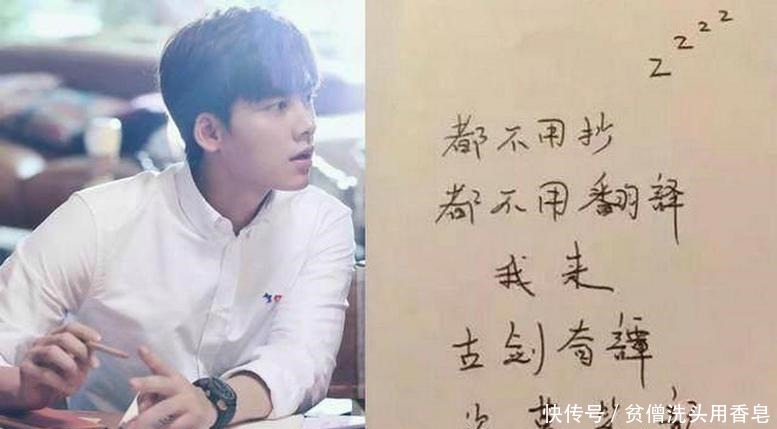 zzzz
都不用抄
都不用翻譯
我来
古剑奇譚
快传号/贫僧洗头用香皂